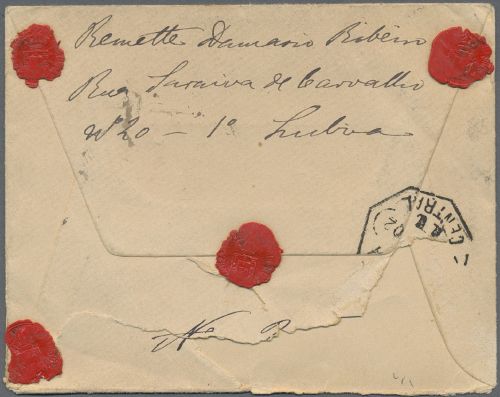 Remette Damasio Ribeiro
Rua Saraiva de Carvalho
Nº 20 - 1º Lisboa
CENTRAL
02